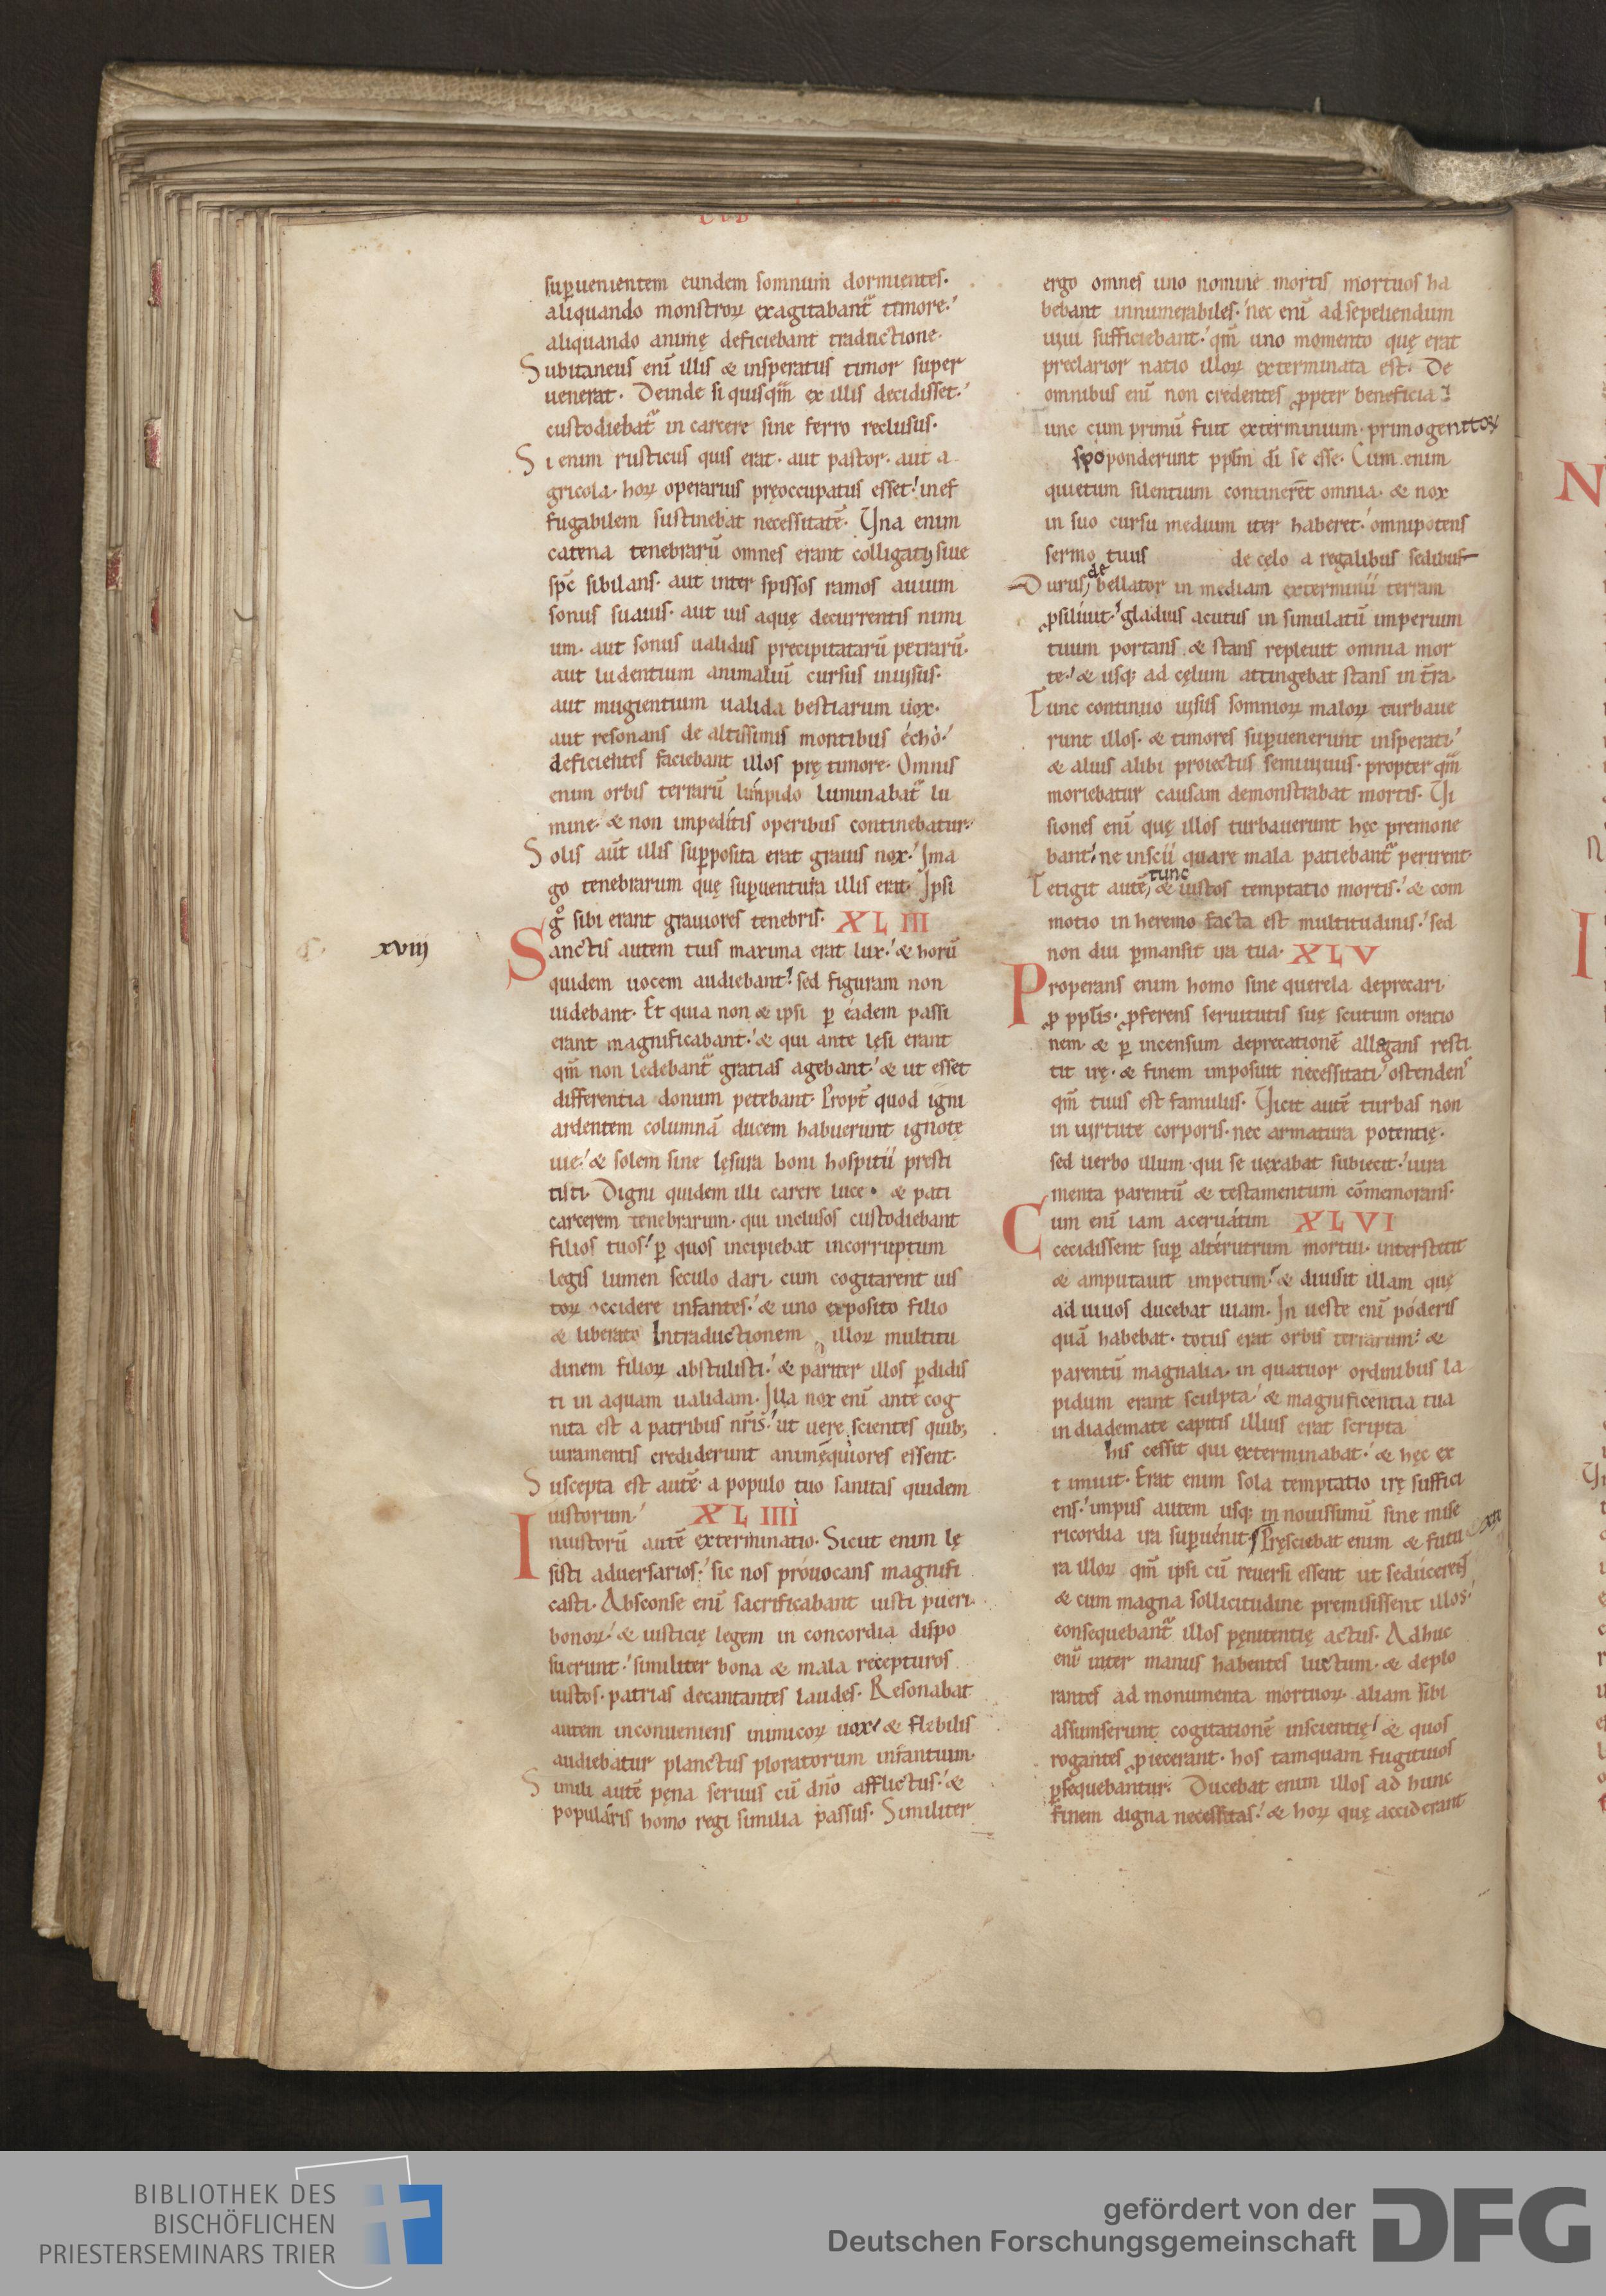 supuenientem eundem somnum dormientes.
aliquando monstroꝝ exagitabant᷑ timore.
aliquando animę deficiebant traductione.
Subitaneus eni᷑ illis & insperatus timor super
uenerat. Deinde si quisqm̄ ex illis decidisset.
custodiebat᷑ in carcere sine ferro reclusus.
Si enim rusticus quis erat. aut pastor. aut a
gricola. hoꝝ operarius pręoccupatus esset. inef
fugabilem sustinebat necessitatē. Una enim
catena tenebrarū omnes erant colligati siue
spc̄ sibilans. aut inter spissos ramos auium
sonus suauis. aut uis aquę decurrentis nimi
um. aut sonus ualidus precipitatarū petrarū.
aut ludentium animaliū cursus inuisus.
aut mugientium ualida bestiarum uox.
aut resonans de altissimis montibus écho.
deficientes faciebant illos prę timore. Omnis
enim orbis terrarū limpido luminabat᷑ lu
mine. & non impeditis operibus continebatur.
Solis aūt illis supposita erat grauis nox. Ima
go tenebrarum quę supuentura illis erat. Ipsi
gͦ sibi erant grauiores tenebris. XLIII
xviij Sanctis autem tuis maxima erat lux. & horū
quidem uocem audiebant. sed figuram non
uidebant. Et quia non & ipsi ꝑ eadem passi
erant magnificabant. & qui ante lęsi erant
qm̄ non ledebant᷑ gratias agebant. & ut esset
differentia donum petebant. Propt̄ quod igni
ardentem columnā ducem habuerunt ignotę
uie. & solem sine lęsura boni hospitii presti
tisti. Digni quidem illi carere luce. & pati
carcerem tenebrarum. qui inclusos custodiebant
filios tuos. ꝑ quos incipiebat incorruptum
legis lumen seculo dari. cum cogitarent ius
toꝝ occidere infantes. & uno exposito filio
& liberato Intraductionem illoꝝ multitu
dinem filioꝝ abstulisti. & pariter illos ꝑdidis
ti in aquam ualidam. Illa nox enī ante cog
nita est a patribus nr̄is. ut uere scientes quib;
iuramentis crediderunt animęquiores essent.
Suscepta est autē a populo tuo sanitas quidem
iustorum. XLIIII
Iniustorū autē exterminatio. Sicut enim lę
sisti aduersarios. sic nos prouocans magnifi
casti. Absconse enī sacrificabant iusti pueri
bonoꝝ. & iusticię legem in concordia dispo
suerunt. similiter bona & mala recepturos
iustos. patrias decantantes laudes. Resonabat
autem inconueniens inimicoꝝ uox. & flebilis
audiebatur planctus ploratorum infantium.
Simili autē pęna seruus cū dn̄o afflictus. &
popularis homo regi similia passus. Similiter
ergo omnes uno nomine mortis mortuos ha
bebant innumerabiles. nec enī ad sepeliendum
uiui sufficiebant. qm̄ uno momento quę erat
preclarior natio illoꝝ exterminata est. De
omnibus enī non credentes ꝓpter beneficia
Tunc cum primū fuit exterminium. primogenitoꝝ
spoponderunt pplm̄ di se esse. Cum enim
quietum silentium contineret omnia. & nox
in suo cursu medium iter haberet. omnipotens
sermo tuus de cęlo a regalibus sedibus
Durus de bellator in mediam exterminii terram
ꝓsiliuit. gladius acutus in simulatū imperium
tuum portans. & stans repleuit omnia mor
te. & usq; ad cęlum attingebat stans in t̄ra.
Tunc continuo uisus somnioꝝ maloꝝ turbaue
runt illos. & timores supuenerunt insperati
& alius alibi proiectus semiuiuus. propter qm̄
moriebatur causam demonstrabat mortis. Ui
siones enī quę illos turbauerunt hęc premone
bant. ne inscii quare mala patiebant᷑ perirent
Tetigit autē tunc & iustos temptatio mortis. & com
motio in heremo facta est multitudinis. sed
non diu ꝑmansit ira tua. XLV
Properans enim homo sine querela deprecari
ꝓ pplis. ꝓferens seruitutis suę scutum oratio
nem. & ꝑ incensum deprecationē allegans resti
tit irę. & finem imposuit necessitati ostendens
qm̄ tuus est famulus. Uicit autē turbas non
in uirtute corporis. nec armatura potentię.
sed uerbo illum qui se uexabat subiecit. iura
menta parentū & testamentum cōmemorans.
Cum enī iam aceruatim XLVI
cecidissent sup alterutrum mortui. interstetit
& amputauit impetum. & diuisit illam quę
ad uiuos ducebat uiam. In ueste enī poderis
quā habebat. totus erat orbis terrarum. &
parentū magnalia. in quatuor ordinibus la
pidum erant sculpta. & magnificentia tua
in diademate capitis illius erat scripta
his cessit qui exterminabat. & hęc ex
timuit. Erat enim sola temptatio irę suffici
ens. impiis autem usq; in nouissimū sine mise
ricordia ira supuenit. Pręsciebat enim & futu
ra illoꝝ qm̄ ipsi cū reuersi essent ut seducerent
& cum magna sollicitudine premisissent illos.
consequebant᷑ illos pęnitentię actus. Adhuc
enī inter manus habentes luctum. & deplo
rantes ad monumenta mortuoꝝ. aliam sibi
assumserunt cogitationē inscientię. & quos
rogantes ꝓiecerant. hos tamquam fugitiuos
ꝑsequebantur. Ducebat enim illos ad hunc
finem digna necessitas. & hoꝝ quę acciderant
BIBLIOTHEK DES
BISCHÖFLICHEN
PRIESTERSEMINARS TRIER
gefördert von der
Deutschen Forschungsgemeinschaft
DFG